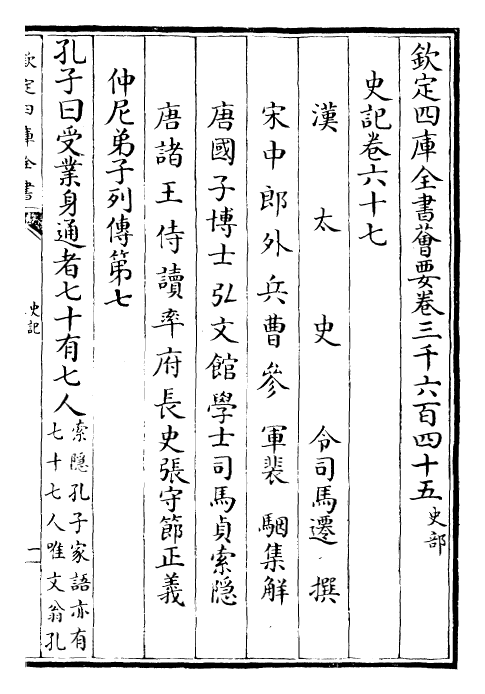 欽定四庫全書薈要卷三千六百四十五 史部
史記卷六十七
漢太史令司馬遷撰
宋中郎外兵曹參軍裴駰集解
唐國子博士弘文館學士司馬貞索隱
唐諸王侍讀率府長史張守節正義
仲尼弟子列傳第七
孔子曰受業身通者七十有七人
索隱孔子家語亦有
七十七人唯文翁孔
欽定四庫全書
史記
一